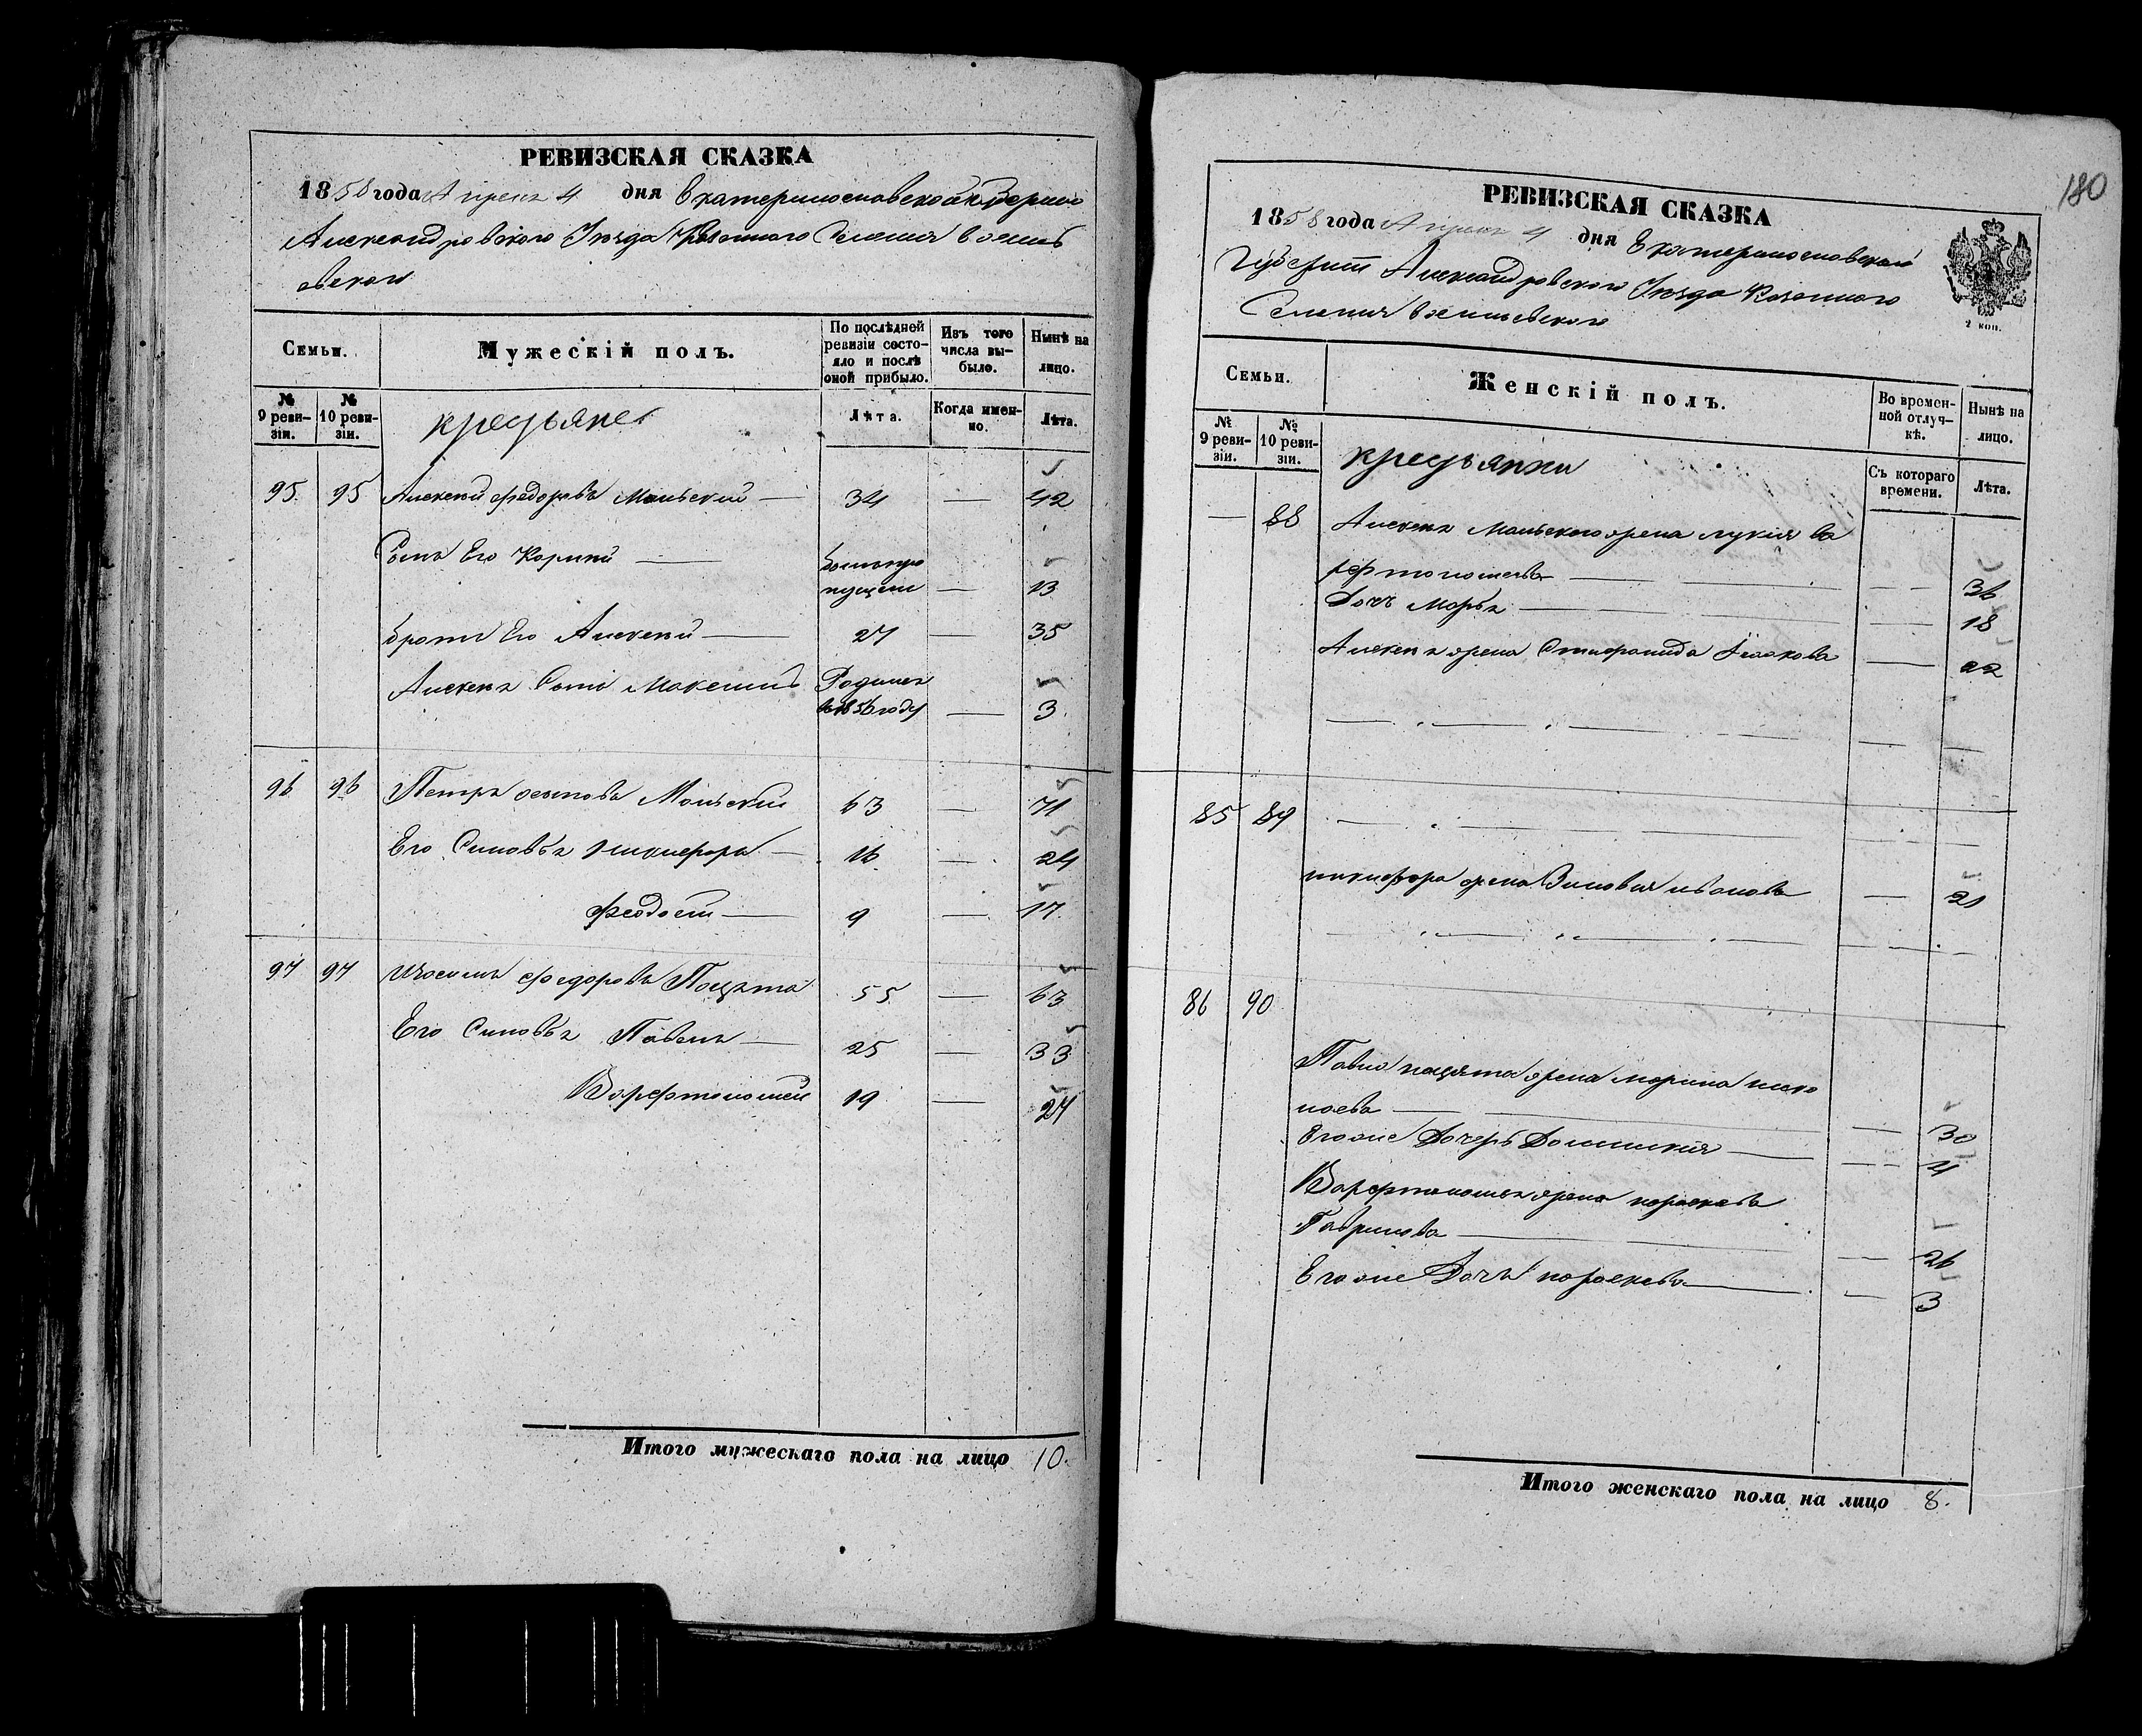 РЕВИЗСКАЯ СКАЗКА
1858 года Апреля 4 дня Екатеринославской Губерніи
Александровского Уезда Казенного Селения
РЕВИЗСКАЯ СКАЗКА
1858 года Апреля 4 дня Екатеринославской
Губерніи Александровского Уезда Казенного
Селения
180
2 коп.
Семьи.
Мужескій полъ.
По послѣдней ревизіи состояло и послѣ оной прибыло.
Изъ того числа выбыло.
Нынѣ на лицо.
№ 9 ревизіи.
№ 10 ревизіи.
крестьяне
Лѣта.
Когда именно.
Лѣта.
95 95 Алексей федоровъ Мальский — 34 — 42
Сынъ Его Корней — былъ пропущен — 13
братъ Его Алексей — 27 — 35
Алексея Сынъ Максимъ Родился в 1856 году — 3
96 96 Петръ осиповъ Мальский 63 — 71
Его Сыновья никифоръ — 16 — 24
феодосий — 9 — 17
97 97 федоровъ Пощата 55 — 63
Его Сыновья Павелъ — 25 — 33
Варфтоломей 19 — 27
Итого мужескаго пола на лицо 10.
Семьи.
Женскій полъ.
Во временной отлучкѣ.
Нынѣ на лицо.
№ 9 ревизіи.
№ 10 ревизіи.
крестьянки
Съ котораго времени.
Лѣта.
— 88 Алексея Мальского жена лукия ва
рфтоломеева — — 36
Дочь Марья — — 18
Алексея жена Стефанида — 22
85 89
никифора жена Зиновия иванова — 21
86 90
Павла пощата жена марина нико
лаева — — 30
Его же Дочерь Домникия — — 4
Варфтоломея жена пораскева
Гаврилова — — 26
Его же Дочь пораскева — — 3
Итого женскаго пола на лицо 8.